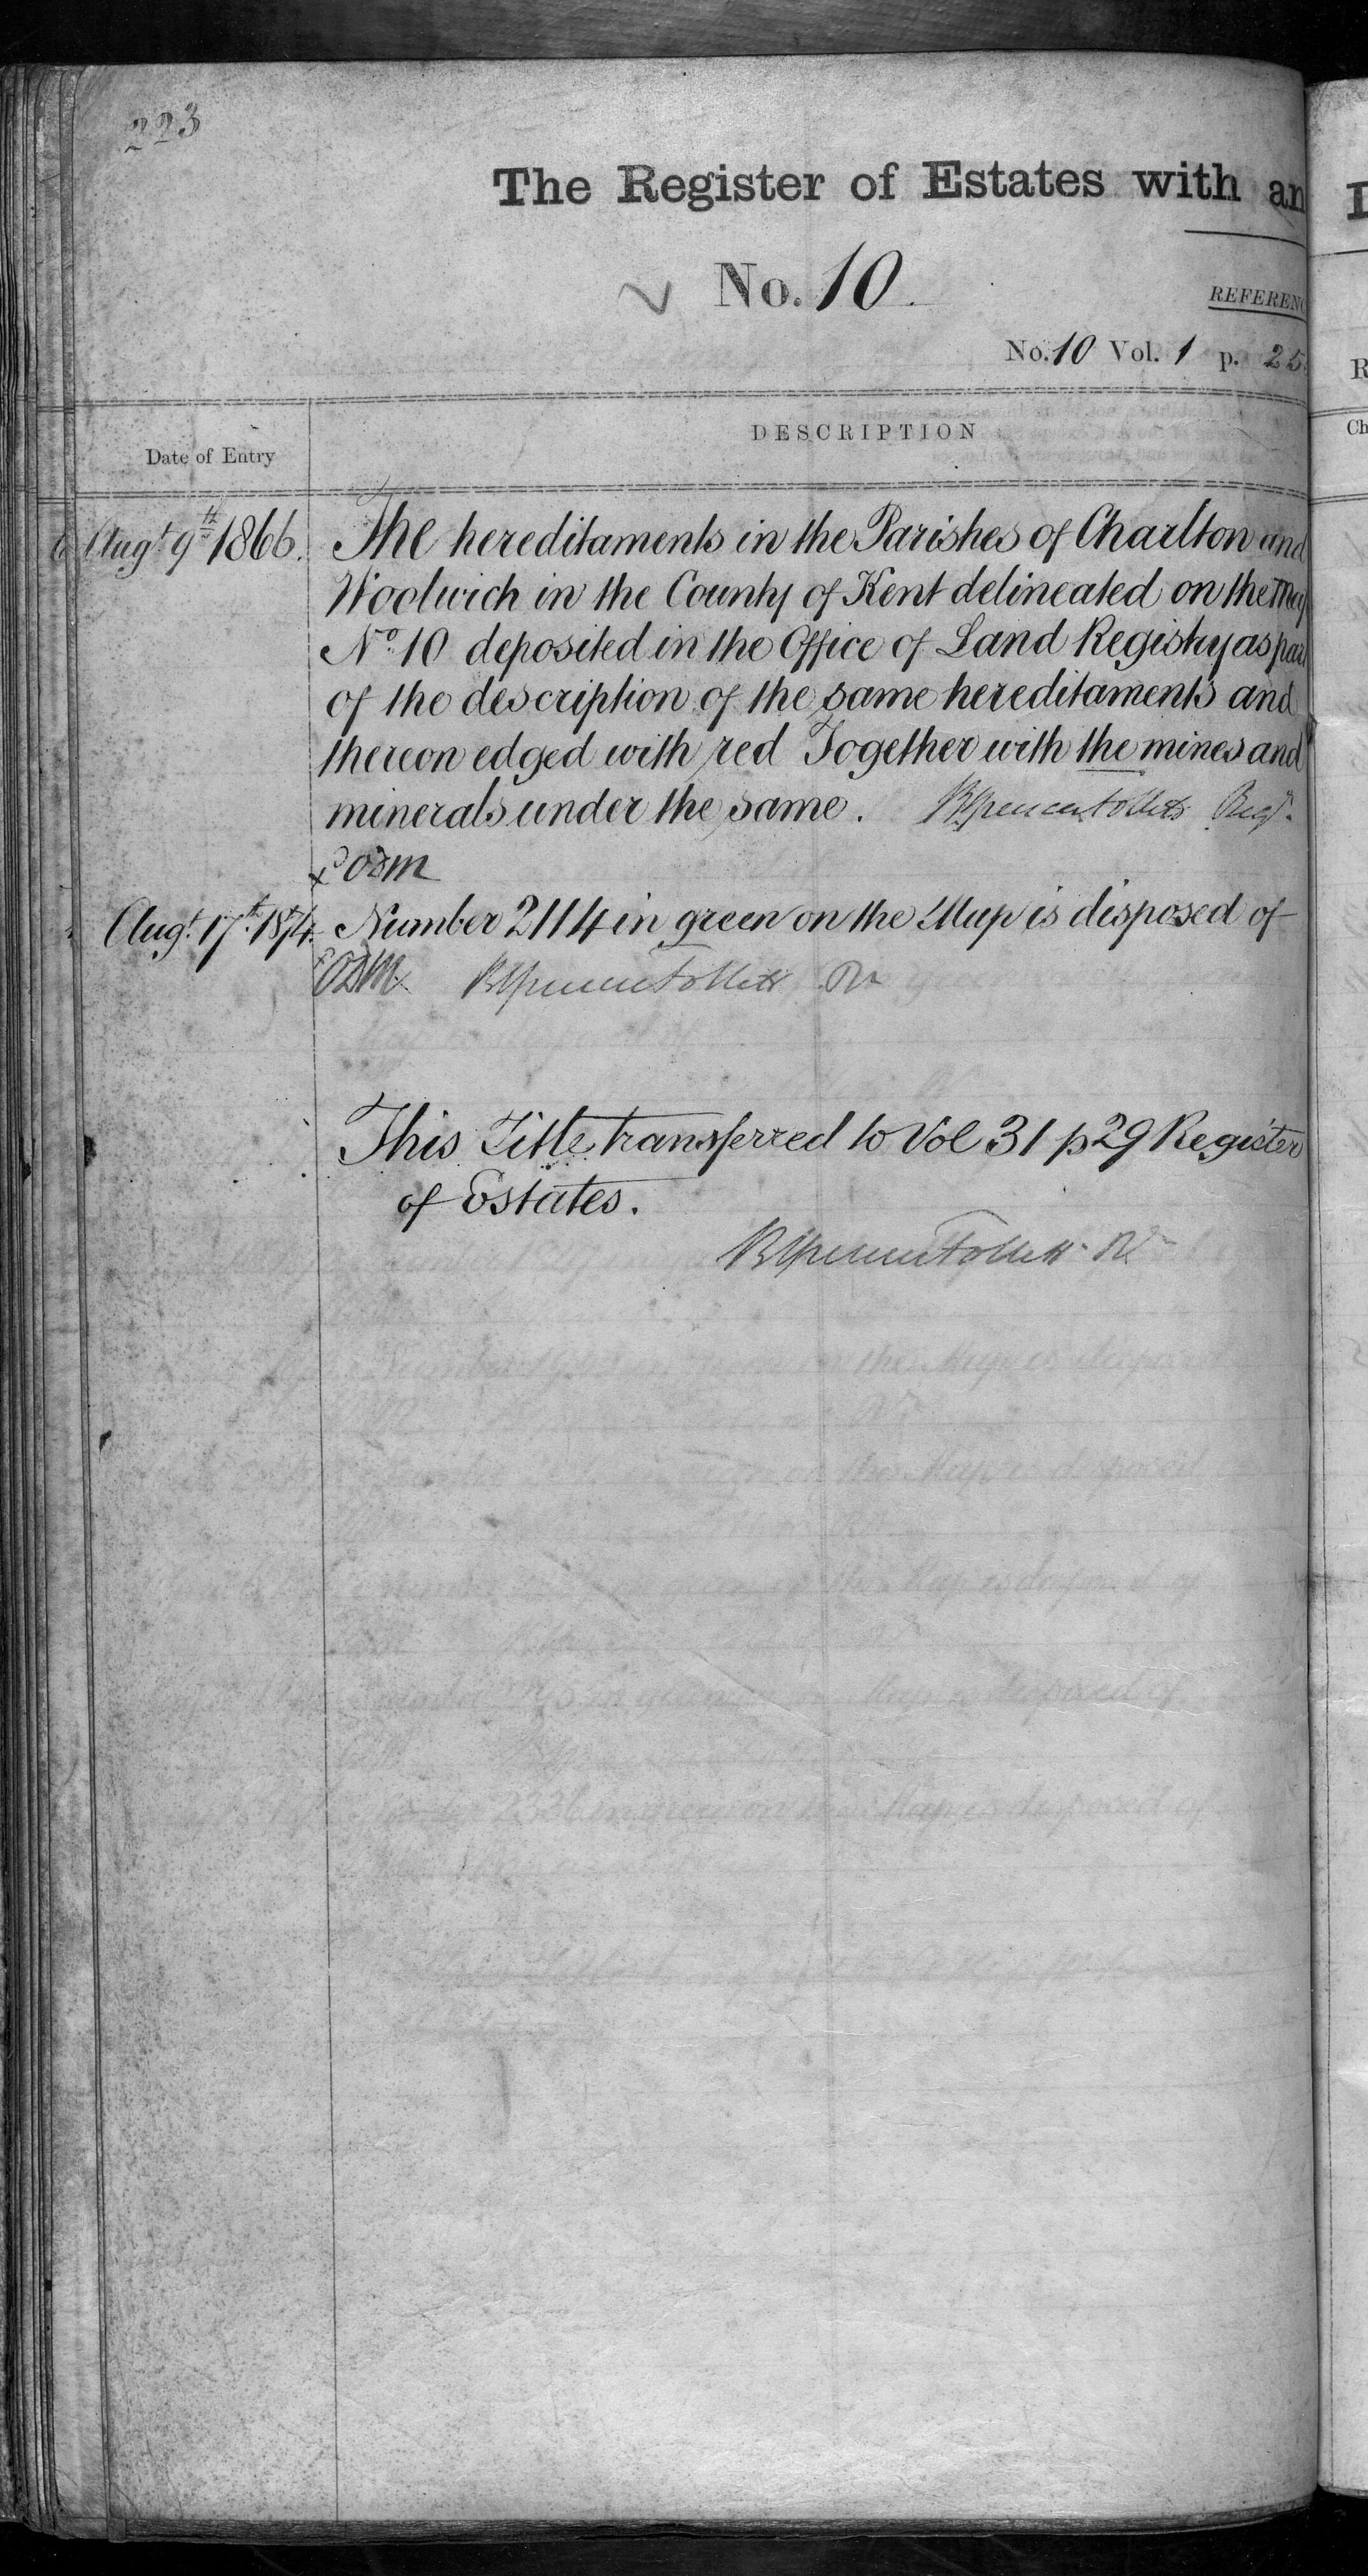 223
The Register of Estates with an
No. 10.
REFERENC
No. 10 Vol. 1 p. 25
DESCRIPTION
Date of Entry
Augt. 9th 1866. The hereditaments in the Parishes of Charlton and
Woolwich in the County of Kent delineated on the Map
No. 10 deposited in the Office of Land Registry as part
of the description of the same hereditaments and
thereon edged with red Together with the mines and
minerals under the same. Brent Spencer Follett Regr.
Augt. 17th 1874. Number 2114 in green on the Map is disposed of
BSpencer Follett Rr
This Title transferred to Vol 31 p 29 Register
of Estates.
BSpencer Follett Rr